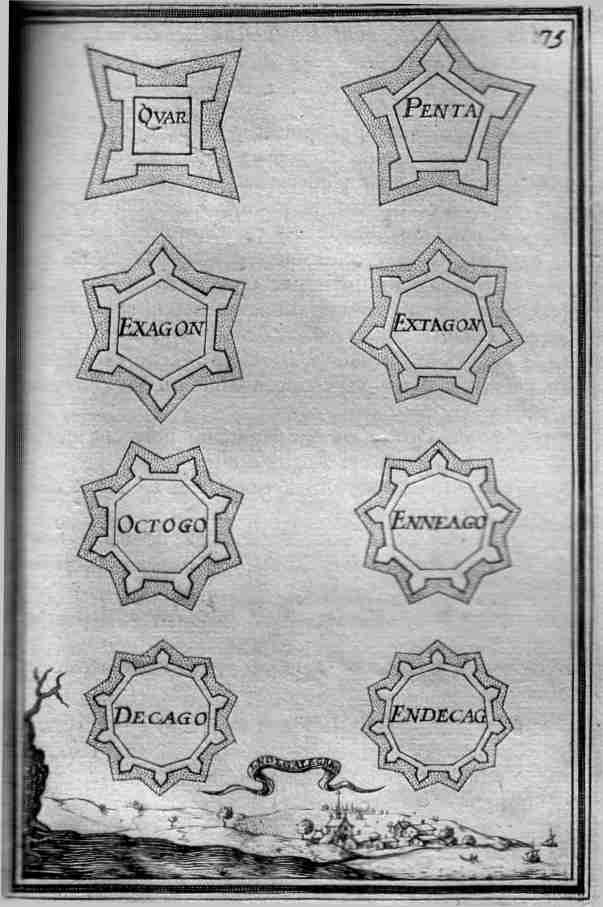 75
QVAR
PENTA
EXAGON
EXTAGON
OCTOGO
ENNEAGO
DECAGO
ENDECAG